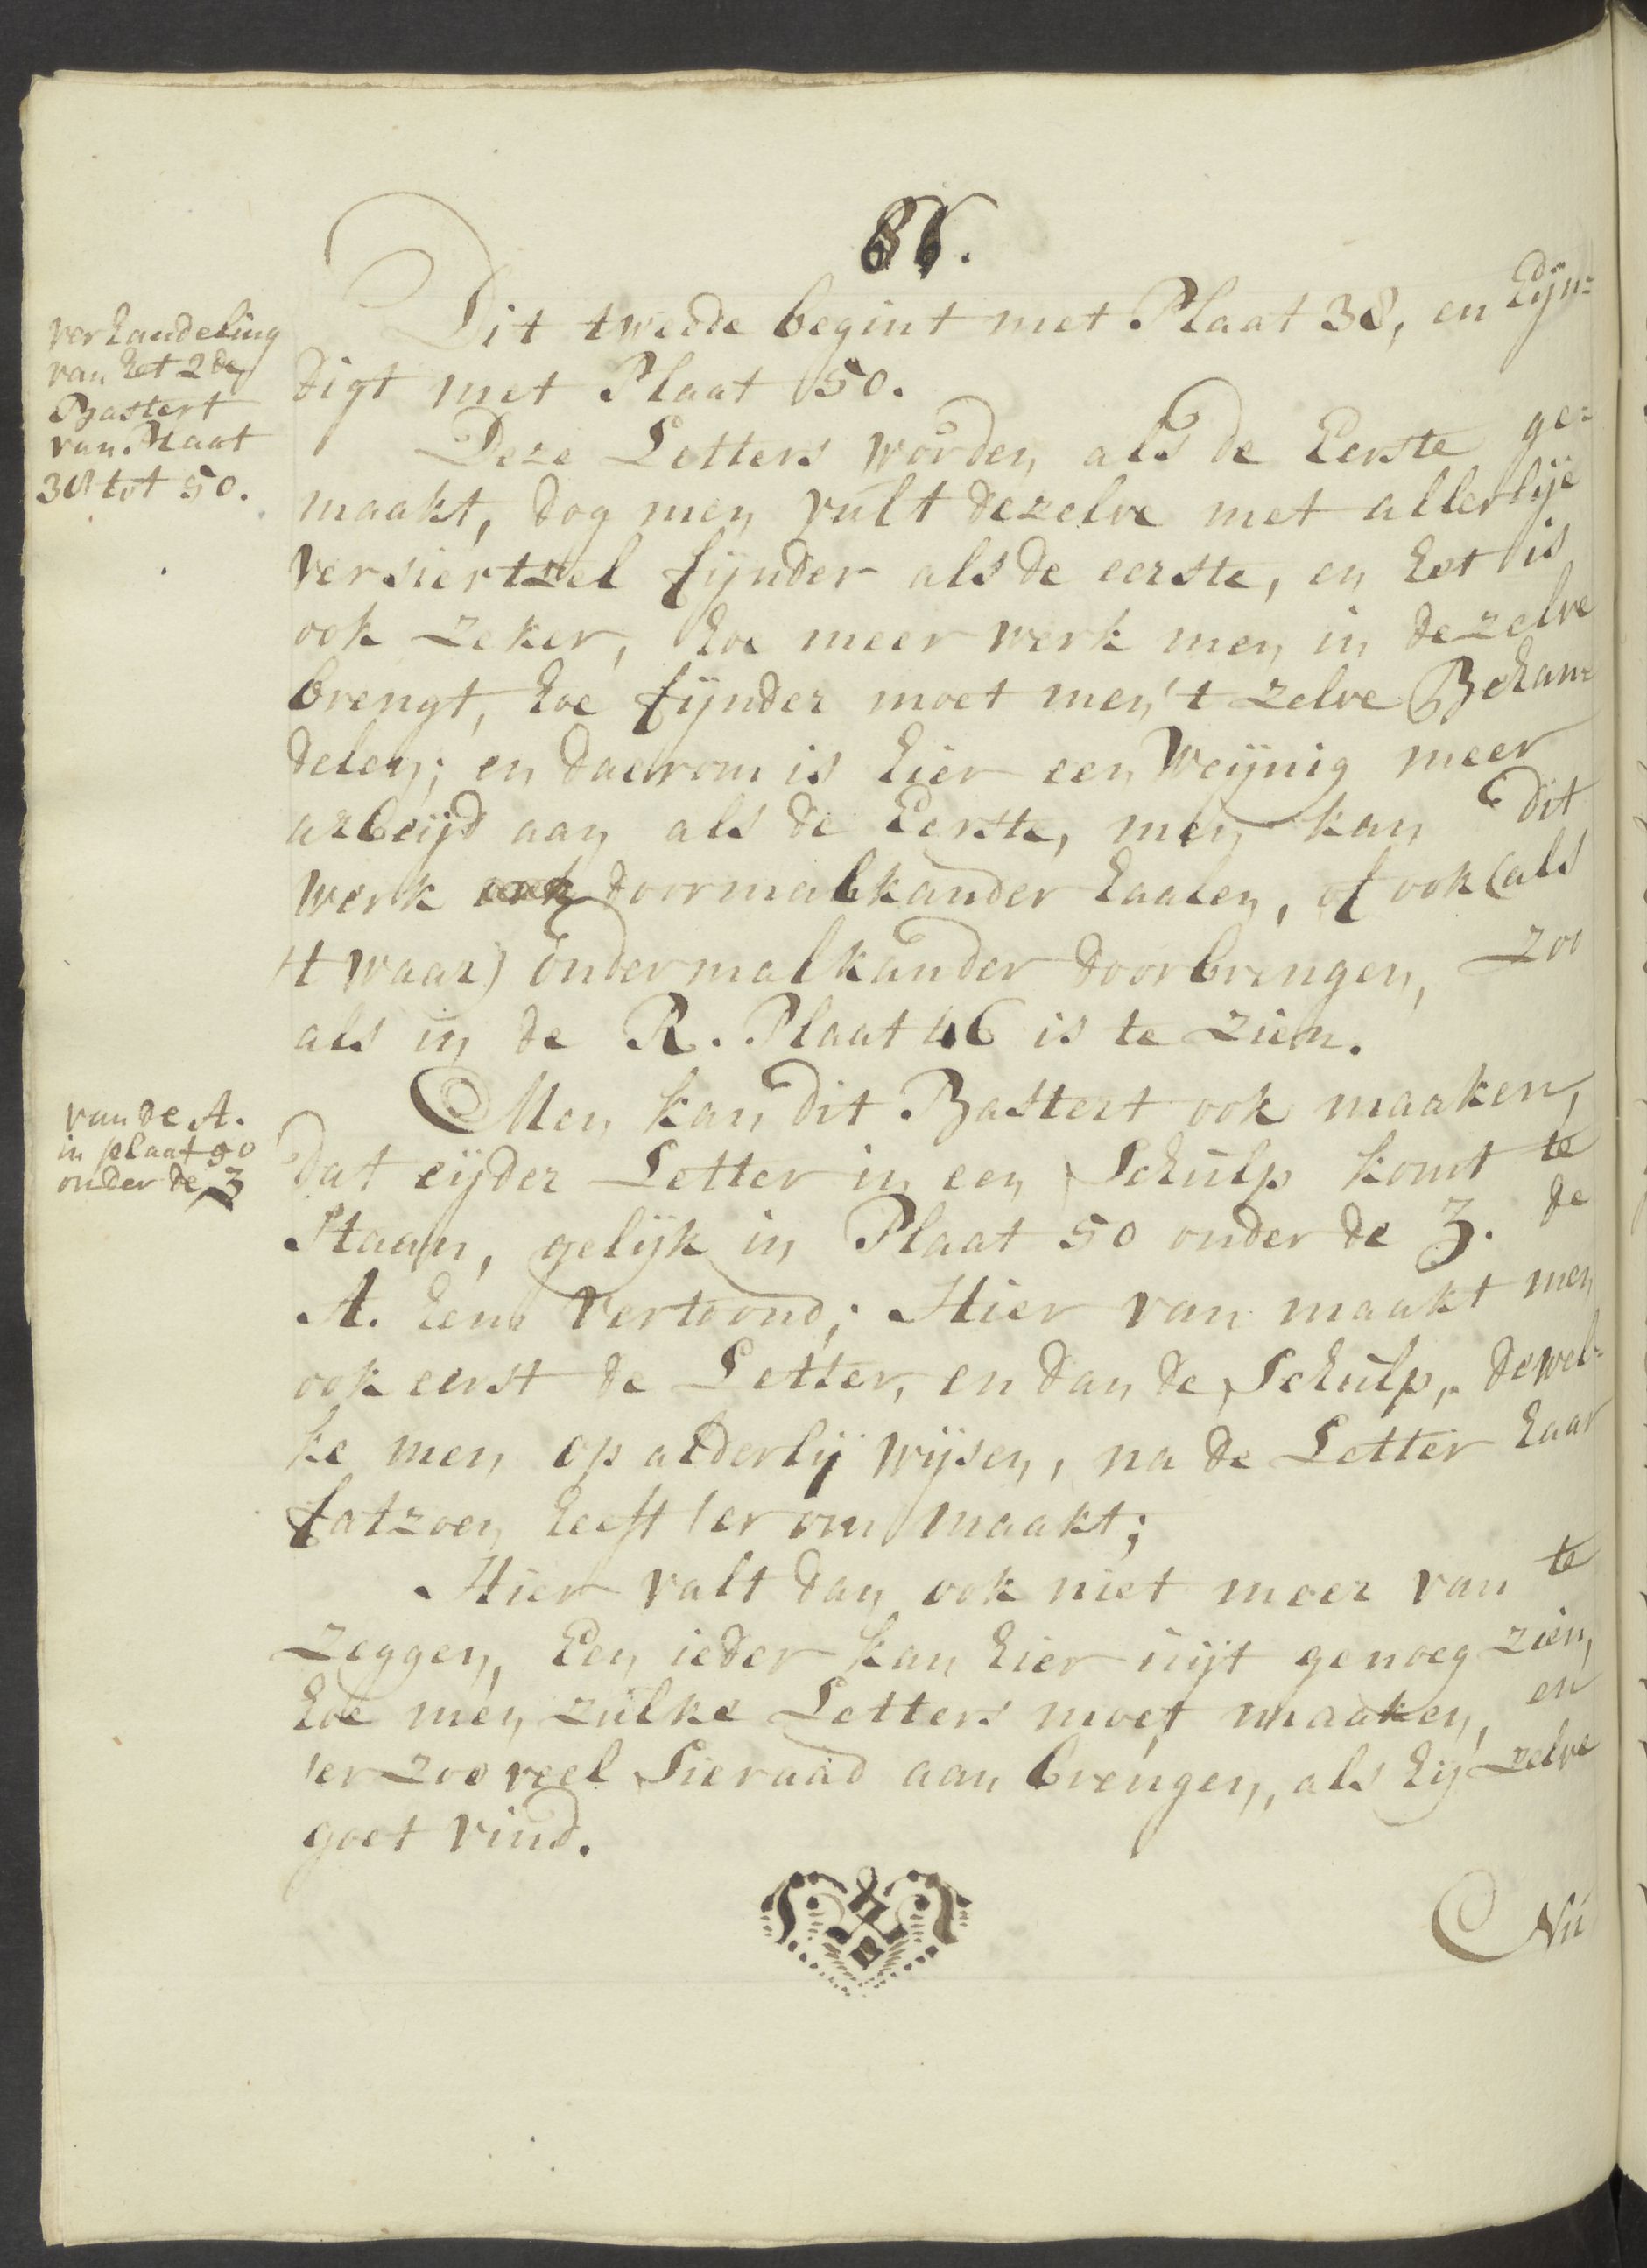 86.
verhandeling
van het 2de
Bastert
van Plaat
38 tot 50.
Dit tweede begint met Plaat 38, en Eijn=
digt met Plaat 50.
Deze Letters worden als de Eerste ge=
maakt, dog men vult dezelve met allerlije
versiertzel fijnder als de eerste, en het is
ook zeker, hoe meer werk men in dezelve
brengt, hoe fijnder moet men 't zelve Behan=
delen; en daerom is hier een Weijnig meer
arbeijd aan als de Eerste, men kan dit
werk doormalkander haalen, of ook (als
't waar) ondermalkander doorbrengen, zoo
als in de R. Plaat 46 is te zien.
van de A.
in plaat 50
onder de Z
Men kan dit Bastert ook maaken,
dat eijder Letter in een Schulp komt te
Staan, gelijk in Plaat 50 onder de Z. de
A. Eens Vertoond; Hier van maakt men
ook eerst de Letter, en dan de Schulp, dewel=
ke men op alderlij wijsen, na de Letter haar
fatzoen heeft 'er om maakt;
Hier valt dan ook niet meer van te
zeggen, Een ieder kan hier uijt genoeg zien,
hoe men zulke Letters moet maaken, en
'er zoo veel Sieraad aan brengen, als hij zelve
goet vind.
Nu